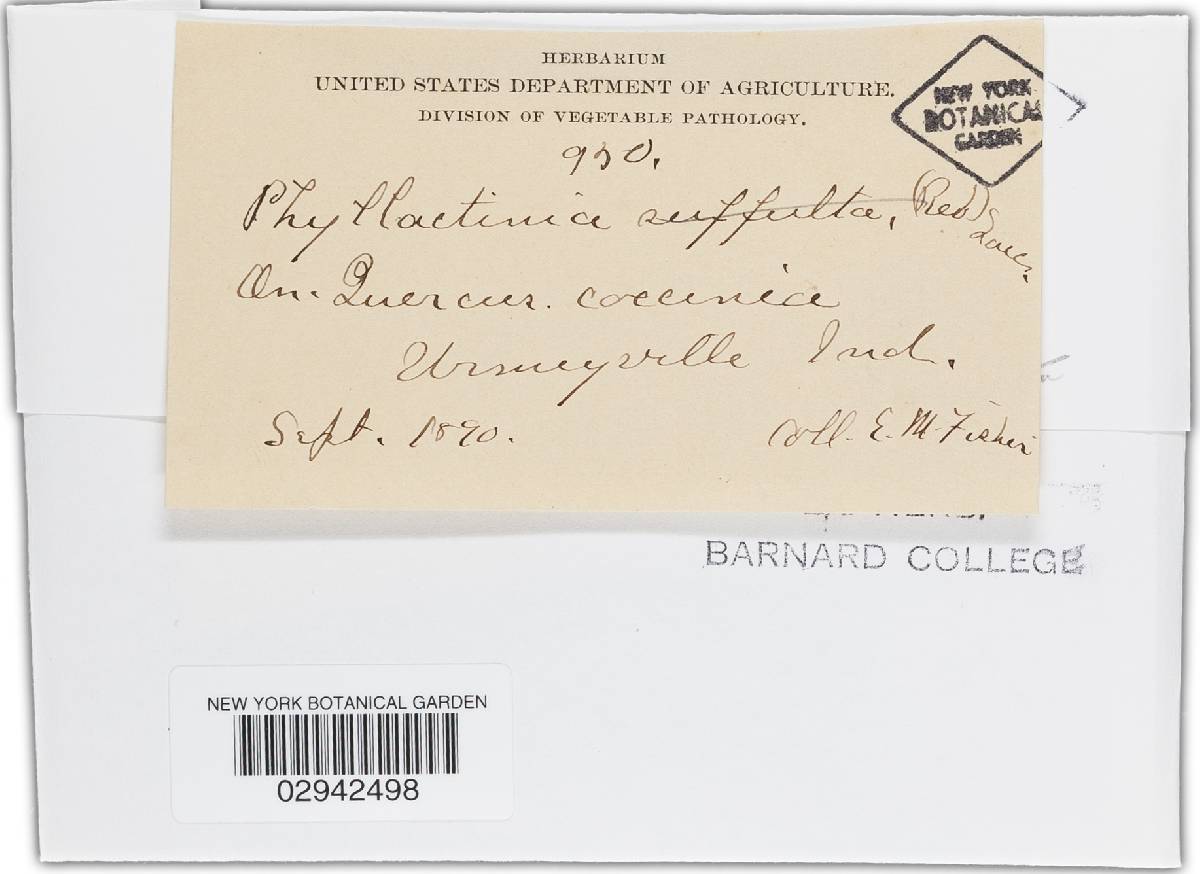 HERBARIUM
UNITED STATES DEPARTMENT OF AGRICULTURE.
DIVISION OF VEGETABLE PATHOLOGY.
NEW YORK
BOTANICAL
GARDEN
930.
Phyllactinia suffulta, (Reb) Sacc.
On. Quercus. coccinia
Urmeyville Ind.
Sept. 1890.
Coll. E. M. Fisher
BARNARD COLLEGE
NEW YORK BOTANICAL GARDEN
02942498